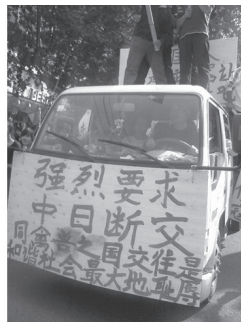 强烈要求
中日断交
同禽兽之国交往是
和谐社会最大地耻辱